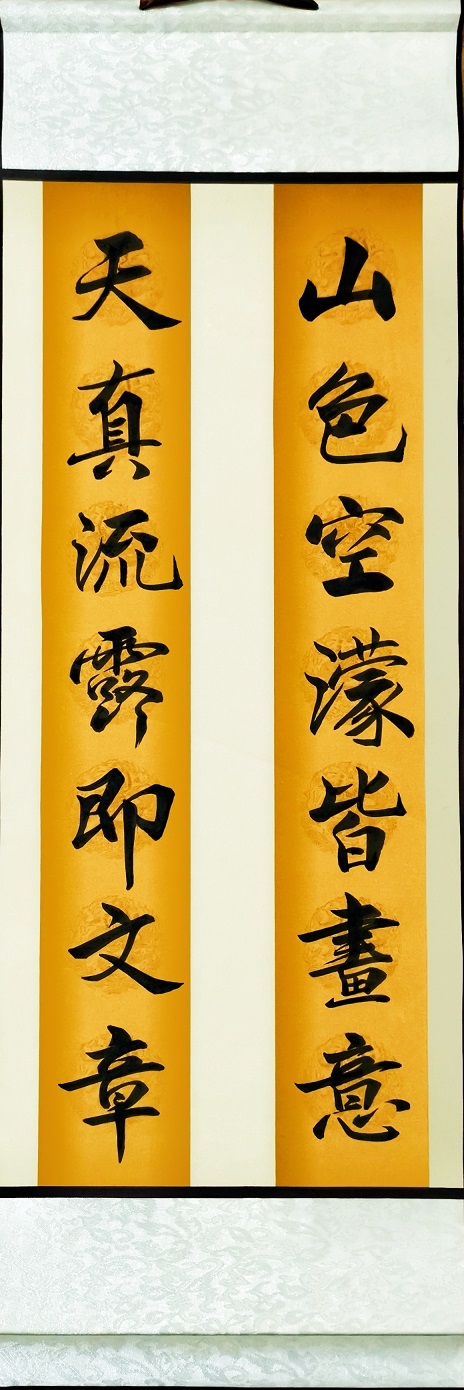 山色空濛皆畫意
天真流露即文章